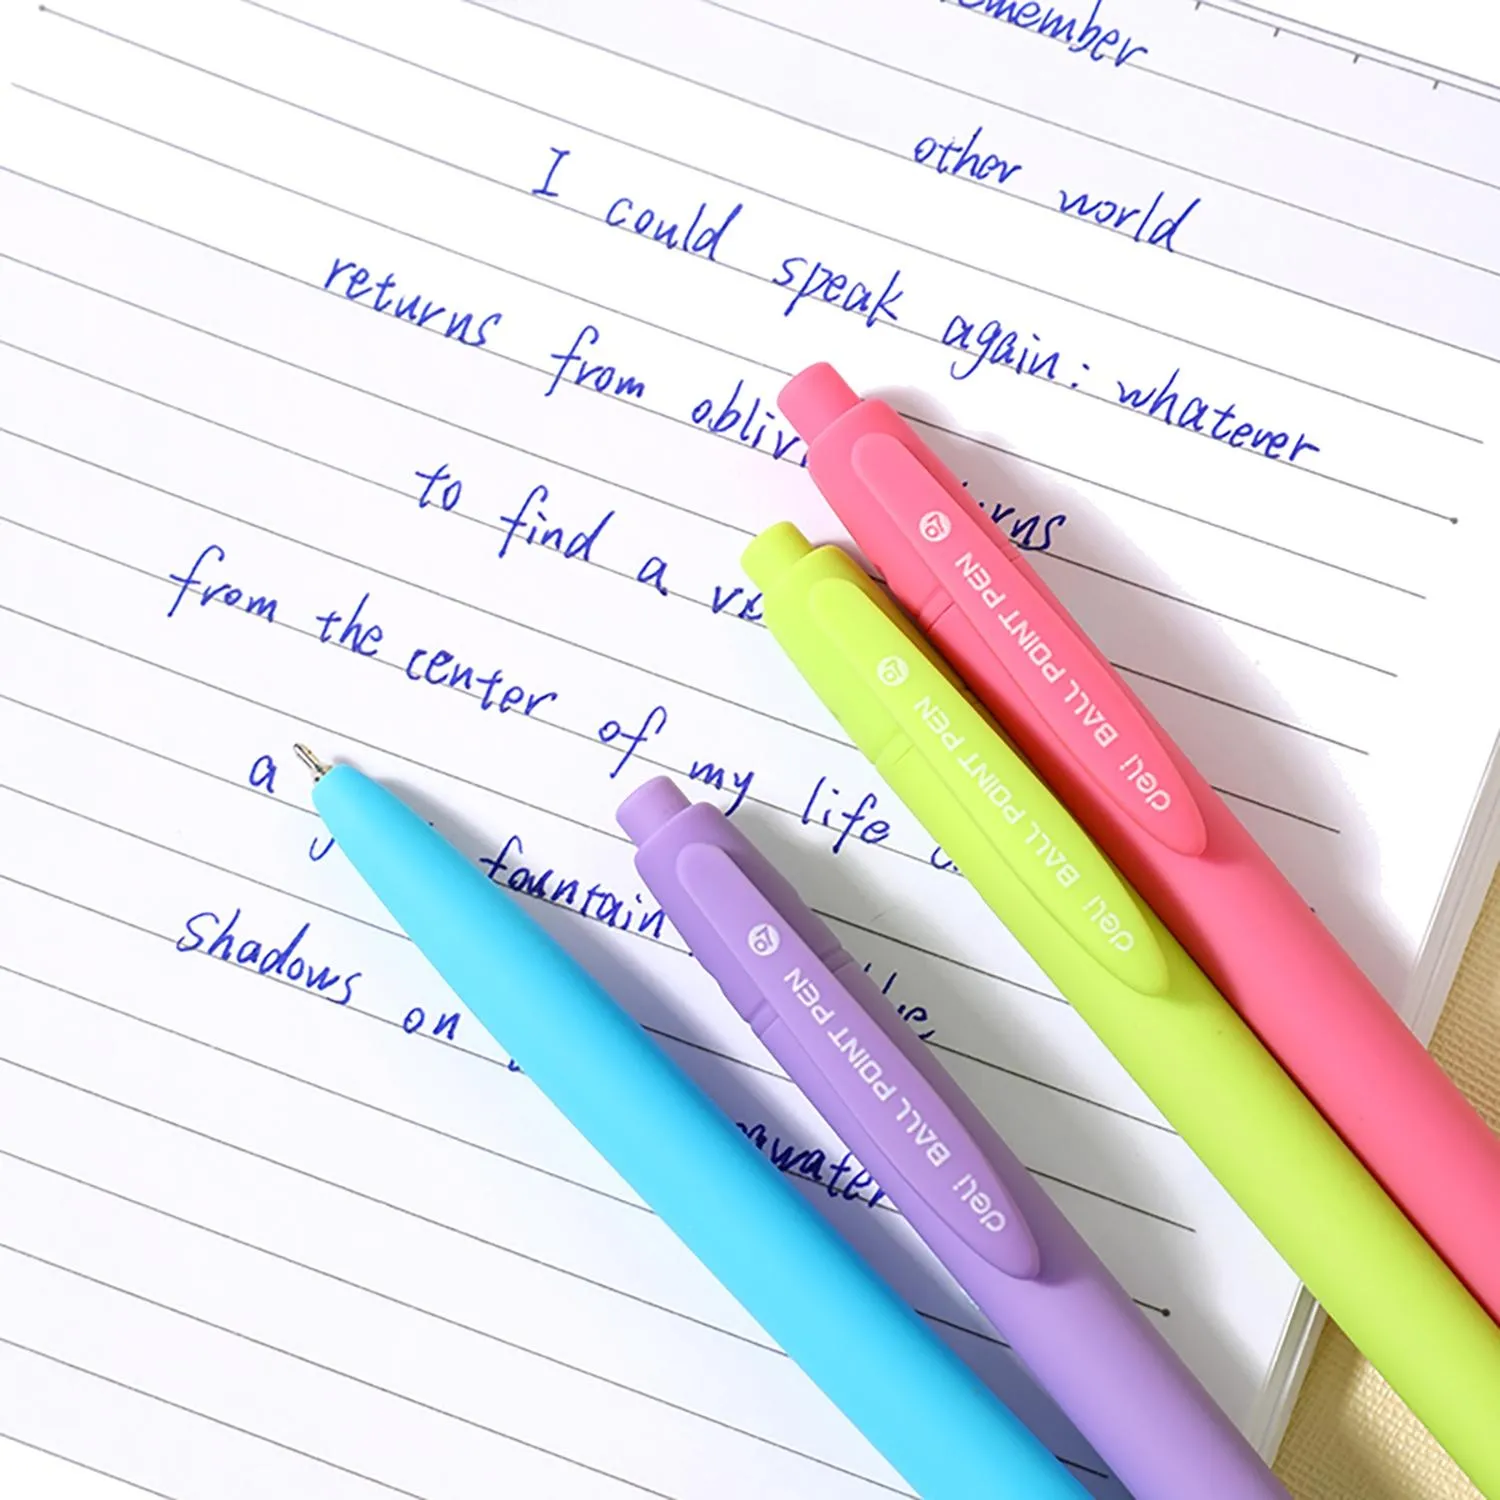 remember
other world
I could speak again: whatever
returns from obliv rns
to find a
from the center of my life
a fountain
Shadows on
water
deli BALL POINT PEN
deli BALL POINT PEN
deli BALL POINT PEN